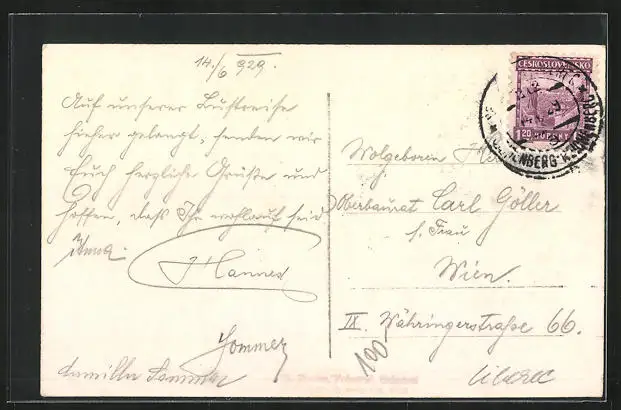 14./6 929.
Auf unserer Lustreise
hieher gelangt, senden wir
Euch herzliche Grüße und
hoffen, daß Ihr wohlauf seid
Hannes
Sommer
Camilla Sommer
ČESKOSLOVENSKO
1.20
Wolgeboren
Oberbaurat Carl Göller
s. Frau
Wien.
IX. Währingerstraße 66.
100
Liberec